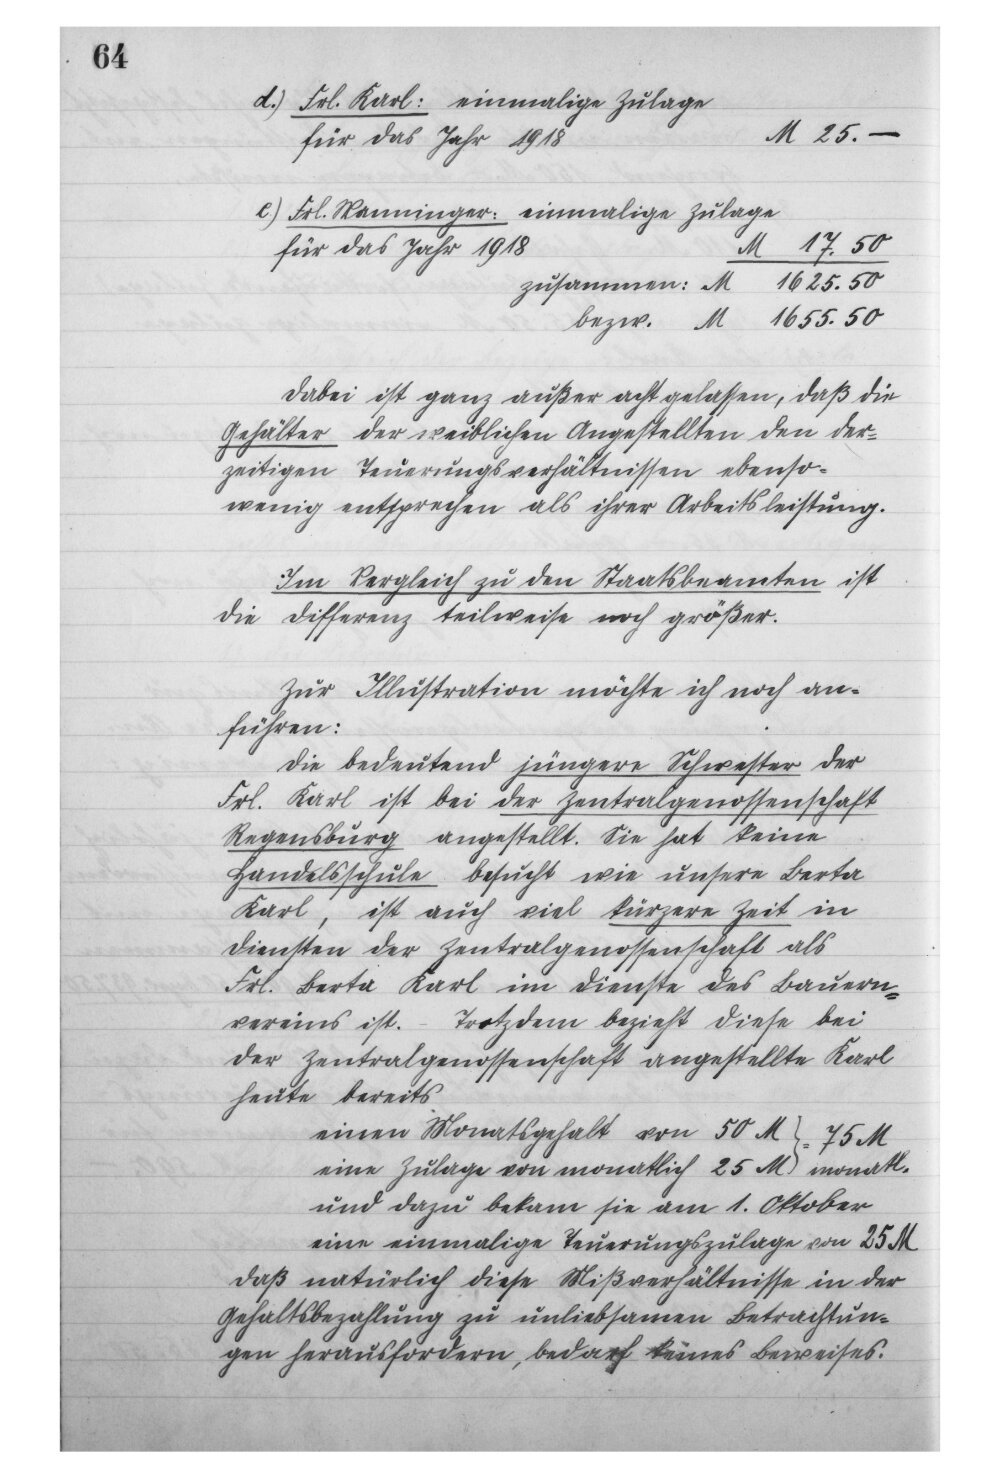 64
d.) Frl. Karl: einmalige Zulage
für das Jahr 1918 M 25.—
e) Frl. Wanninger: einmalige Zulage
für das Jahr 1918 M 17.50
zusammen: M 1625.50
bezw. M 1655.50
Dabei ist ganz außer acht gelassen, daß die
Gehälter der weiblichen Angestellten den der=
zeitigen Teuerungsverhältnissen ebenso-
wenig entsprechen als ihrer Arbeitsleistung.
Im Vergleich zu den Staatsbeamten ist
die Differenz teilweise noch größer.
Zur Illustration möchte ich noch an-
führen:
Die bedeutend jüngere Schwester der
Frl. Karl ist bei der Zentralgenossenschaft
Regensburg angestellt. Sie hat keine
Handelsschule besucht wie unsere Berta
Karl, ist auch viel kürzere Zeit in
Diensten der Zentralgenossenschaft als
Frl. Berta Karl im Dienste des Bauern=
vereins ist. - Trotzdem bezieht diese bei
der Zentralgenossenschaft angestellte Karl
heute bereits
einen Monatsgehalt von 50 M } = 75 M
eine Zulage von monatlich 25 M } monatl.
und dazu bekam sie am 1. Oktober
eine einmalige Teuerungszulage von 25 M
Daß natürlich diese Mißverhältnisse in der
Gehaltsbezahlung zu unliebsamen Betrachtun-
gen herausfordern, bedarf keines Beweises.